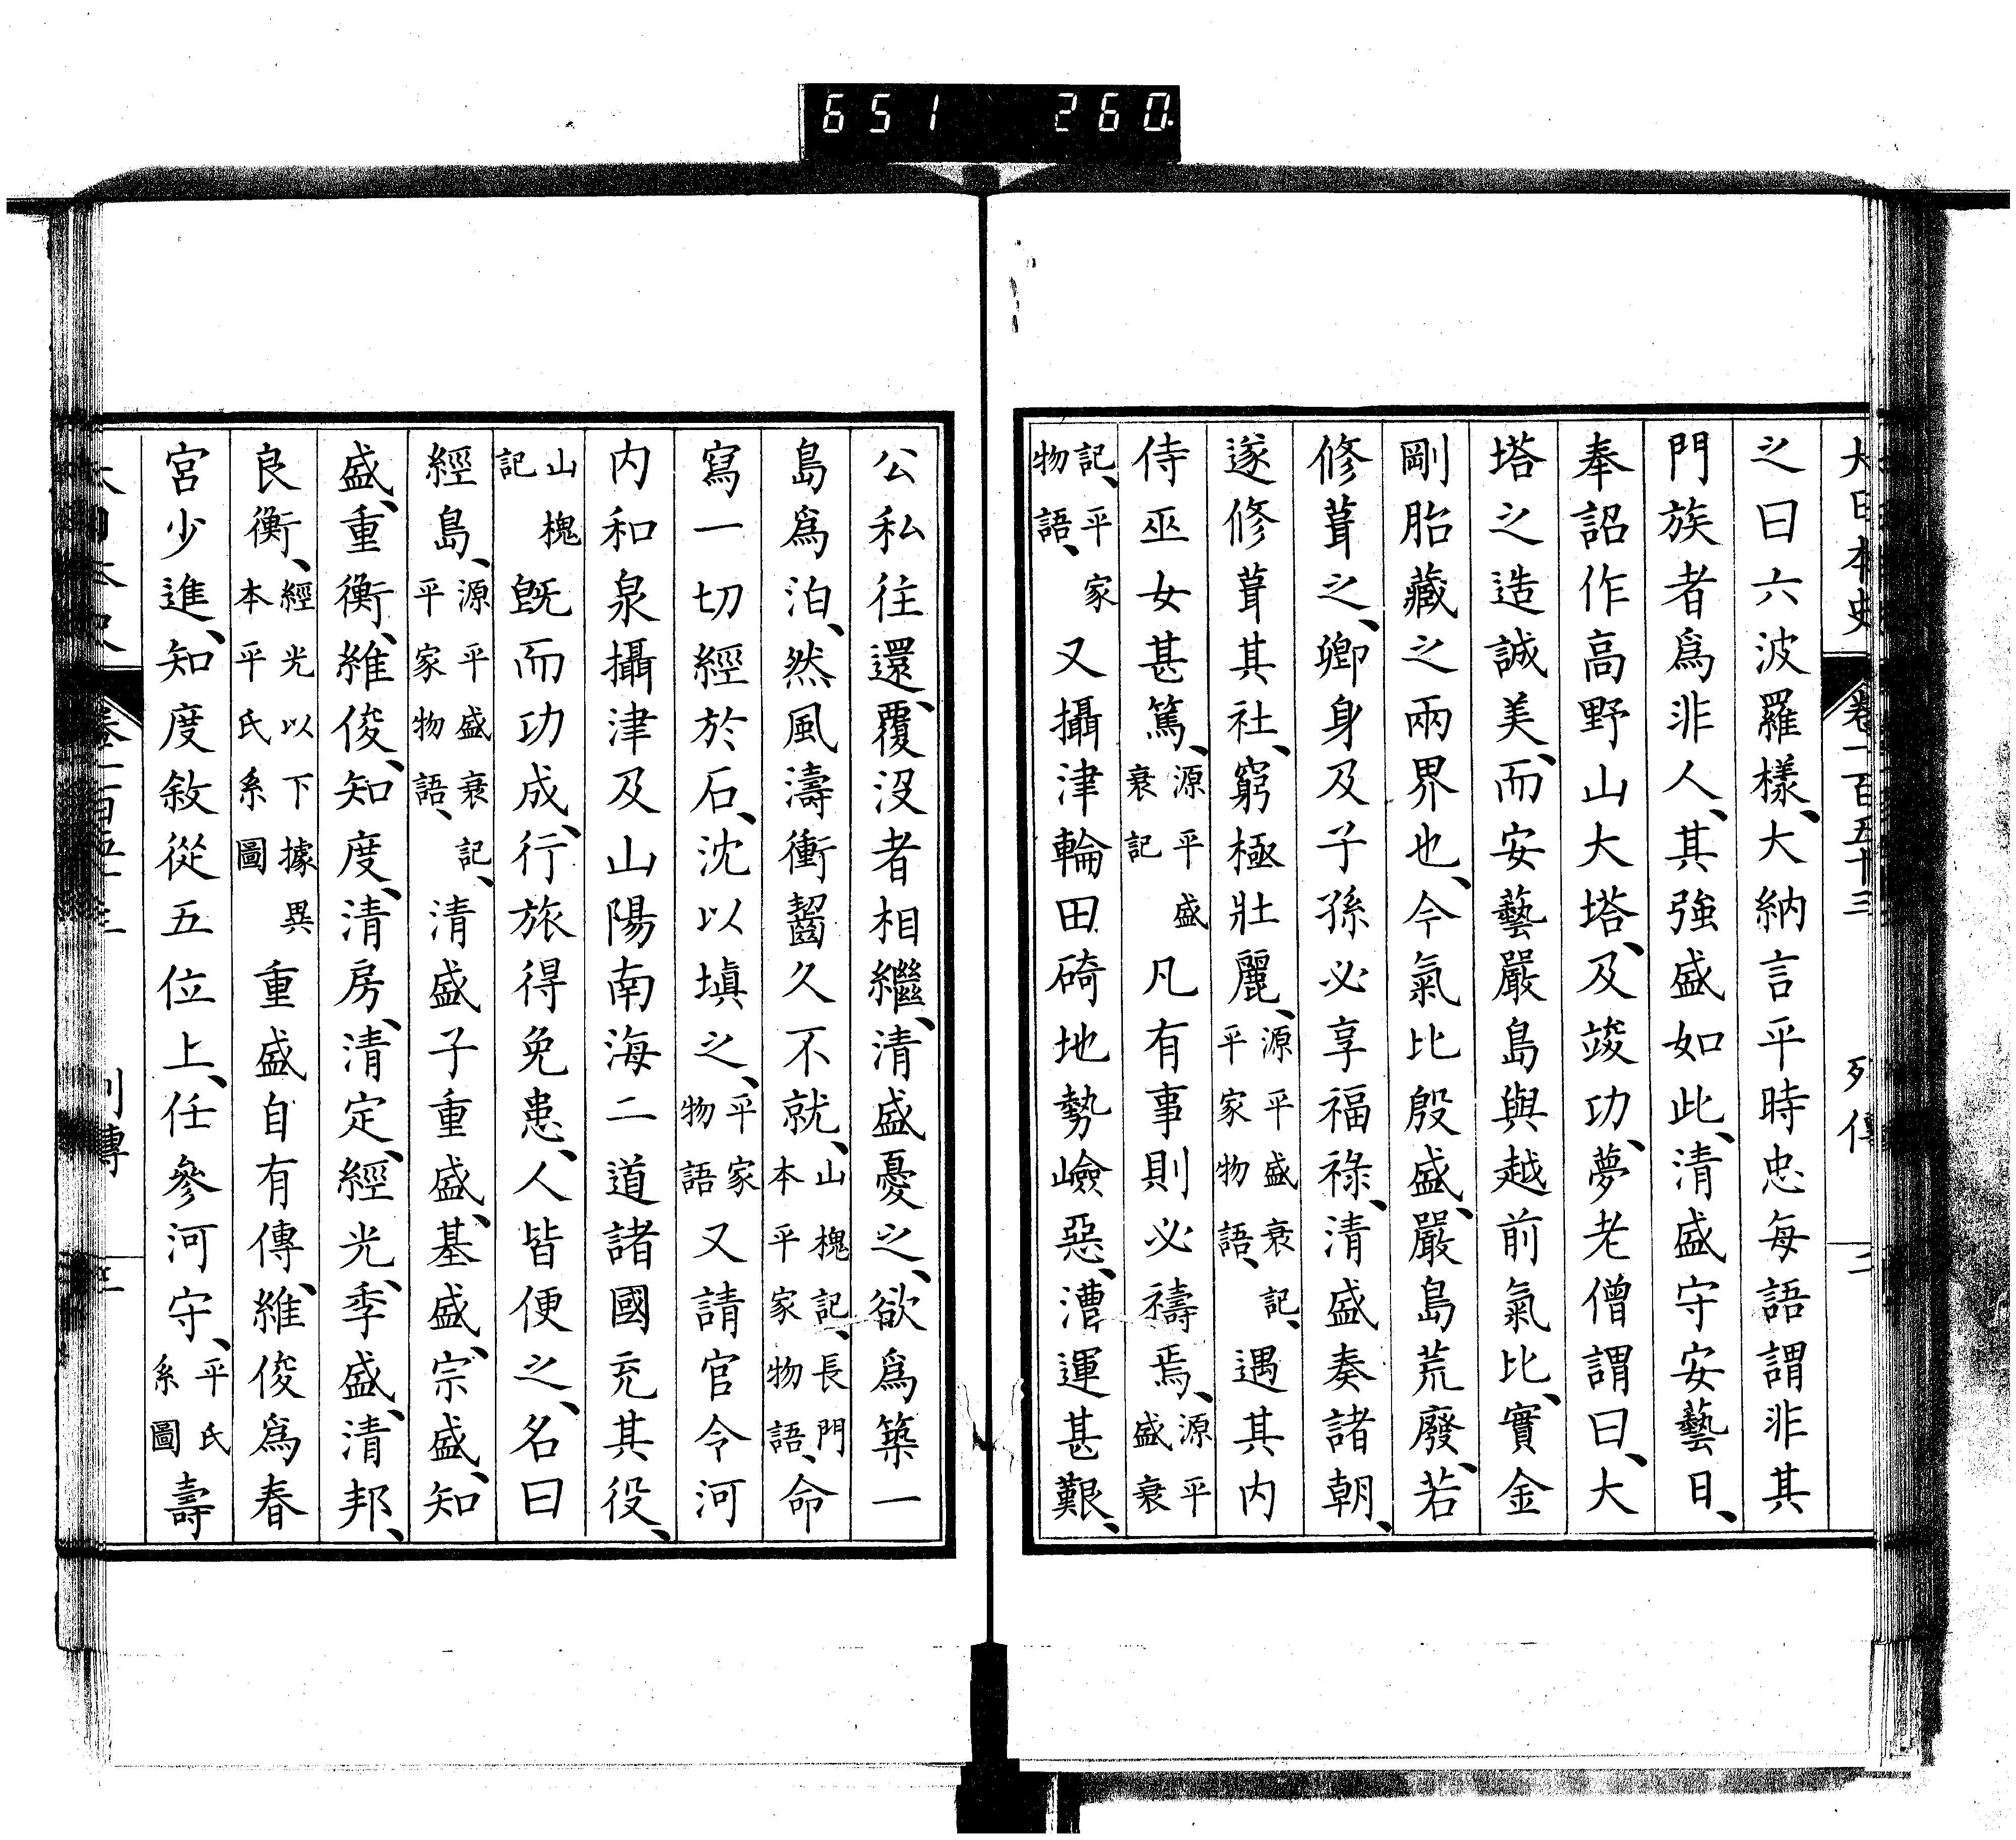 651 260
大日本史 卷一百五十三 列傳 二
之曰六波羅樣、大納言平時忠每語謂非其
門族者爲非人、其強盛如此、清盛守安藝日、
奉詔作高野山大塔、及竣功、夢老僧謂曰、大
塔之造誠美、而安藝嚴島與越前氣比、實金
剛胎藏之兩界也、今氣比殷盛、嚴島荒廢、若
修葺之、卿身及子孫必享福祿、清盛奏諸朝、
遂修葺其社、窮極壯麗、源平盛衰記、平家物語、遇其内
侍巫女甚篤、源平盛衰記凡有事則必禱焉、源平盛衰
記、平家物語、又攝津輪田碕地勢嶮惡、漕運甚艱、
公私往還、覆沒者相繼、清盛憂之、欲爲築一
島爲泊、然風濤衝齧久不就、山槐記、長門本平家物語、命
寫一切經於石、沈以塡之、平家物語又請官令河
内和泉攝津及山陽南海二道諸國充其役、
山槐記既而功成、行旅得免患、人皆便之、名曰
經島、源平盛衰記、平家物語、清盛子重盛、基盛、宗盛、知
盛、重衡、維俊、知度、清房、清定、經光、季盛、清邦、
良衡、經光以下據異本平氏系圖重盛自有傳、維俊爲春
宮少進、知度敘從五位上、任參河守、平氏系圖壽